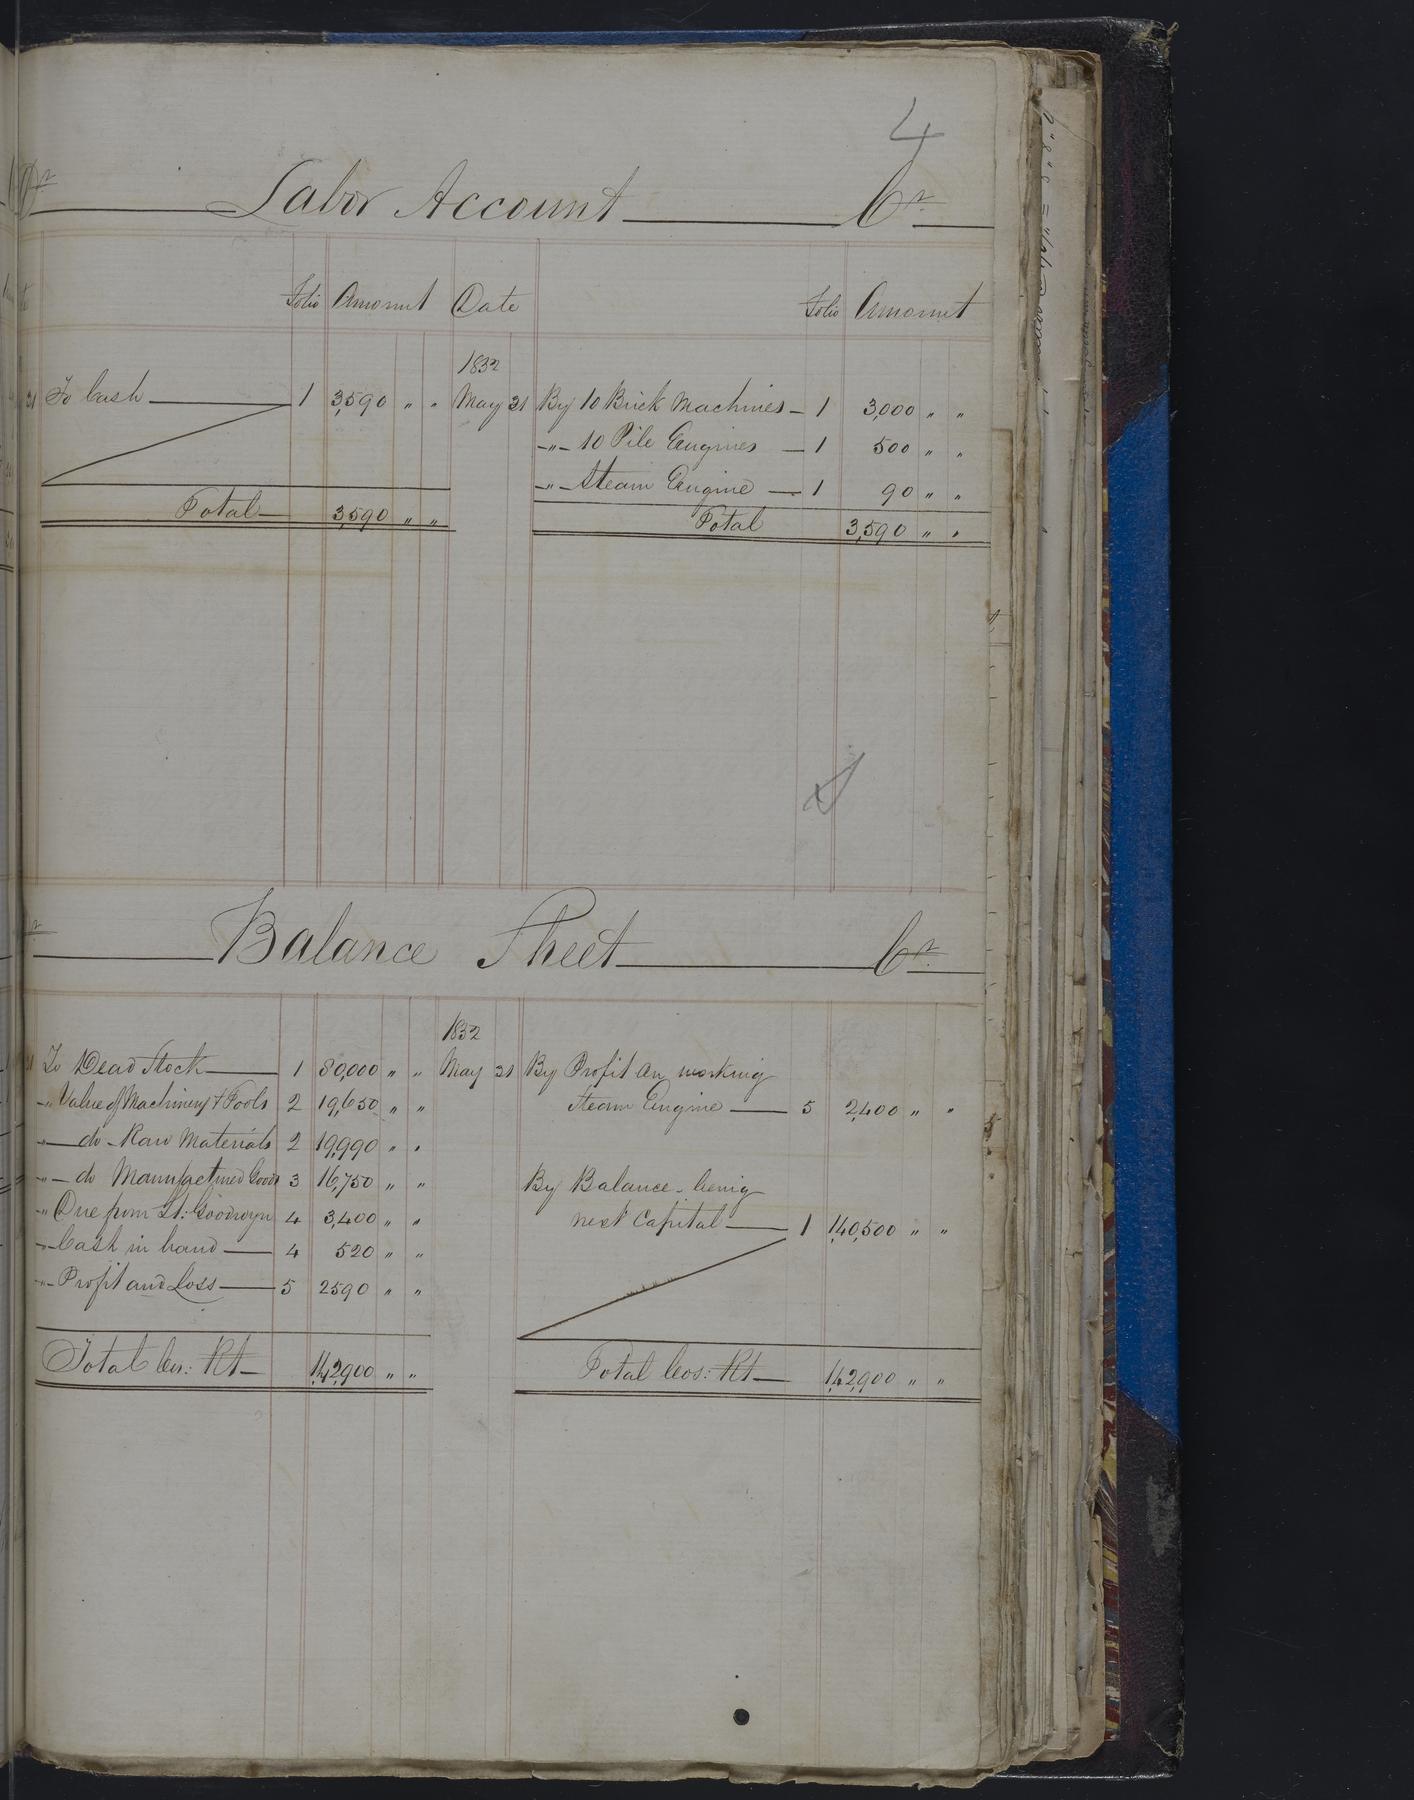 4
Dr Labor Account Cr
Folio Amount Date Folio Amount
1832
31 To Cash 1 3,590 " " May 31 By 10 Brick Machines 1 3,000 " "
-"- 10 Pile Engines 1 500 " "
-"- Steam Engine 1 90 " "
Total 3,590 " " Total 3,590 " "
Balance Sheet Cr
1832
31 To Dead Stock 1 80,000 " " May 31 By Profit on working
-" Value of Machinery & Tools 2 19,650 " " Steam Engine 5 2,400 " "
" do Raw Materials 2 19,990 " "
" do Manufactured Goods 3 16,750 " " By Balance being
" Due from Lt: Goodwyn 4 3,400 " " next Capital 1 1,40,500 " "
-" Cash in hand 4 520 " "
-"- Profit and Loss 5 2590 " "
Total Cos: Rt 1,42,900 " " Total Cos: Rt 1,42,900 " "